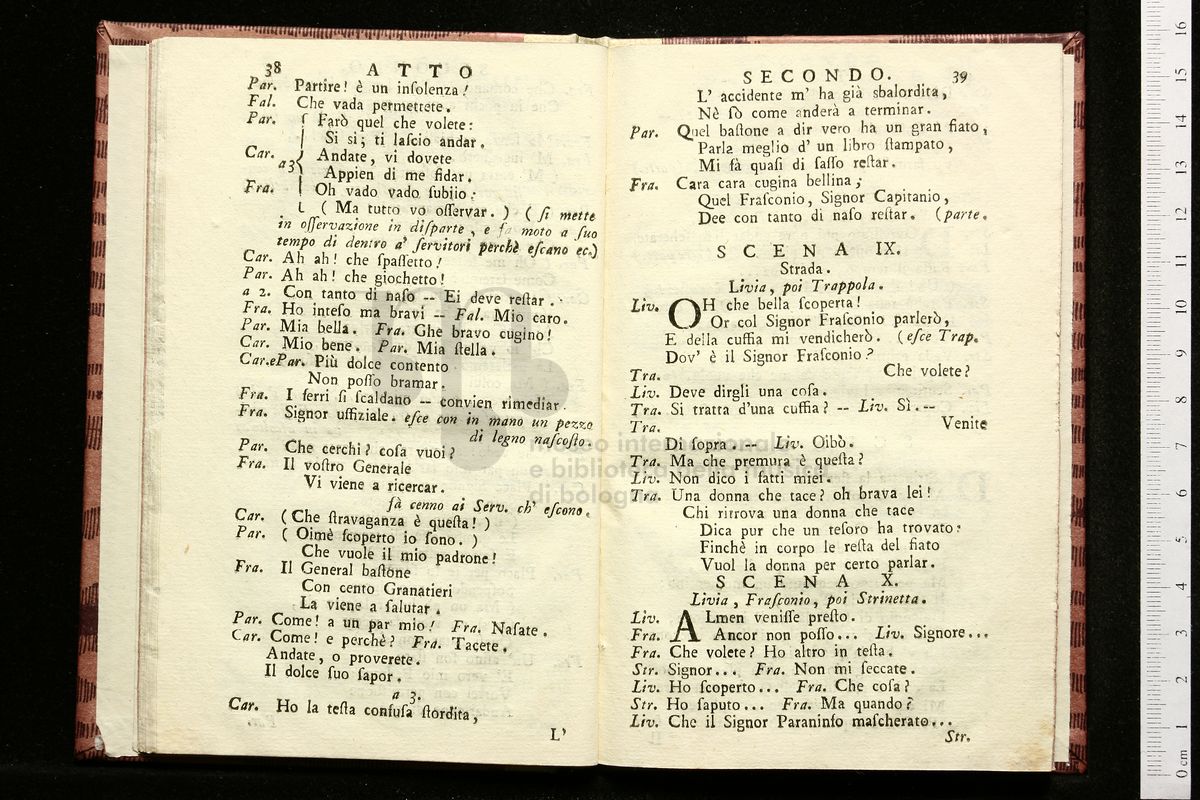 38 ATTO
Par. Partire! è un inſolenza!
Fal. Che vada permettete.
Par. Farò quel che volete:
Si si; ti laſcio andar.
Car. Andate, vi dovete
a3
Appien di me fidar.
Fra. Oh vado vado ſubito:
( Ma tutto vo oſſervar. ) ( ſi mette
in oſſervazione in diſparte, e fa moto a ſuo
tempo di dentro a' ſervitori perchè eſcano ec.)
Car. Ah ah! che ſpaſſetto!
Par. Ah ah! che giochetto!
a 2. Con tanto di naſo -- Ei deve reſtar.
Fra. Ho inteſo ma bravi -- Fal. Mio caro.
Par. Mia bella. Fra. Ghe bravo cugino!
Car. Mio bene. Par. Mia ſtella.
Car.ePar. Più dolce contento
Non poſſo bramar.
Fra. I ferri ſi ſcaldano -- convien rimediar.
Fra. Signor uffiziale. eſce con in mano un pezzo
di legno naſcoſto.
Par. Che cerchi? coſa vuoi?
Fra. Il voſtro Generale
Vi viene a ricercar.
fà cenno ai Serv. ch' eſcono.
Car. (Che ſtravaganza è queſta!)
Par. ( Oimè ſcoperto io ſono. )
Che vuole il mio padrone!
Fra. Il General baſtone
Con cento Granatieri
La viene a ſalutar.
Par. Come! a un par mio! Fra. Naſate.
Car. Come! e perchè? Fra. Tacete.
Andate, o proverete.
Il dolce ſuo ſapor.
a 3.
Car. Ho la teſta confuſa ſtordita,
L'
SECONDO. 39
L' accidente m' ha già sbalordita,
Nè ſò come anderà a terminar.
Par. Quel baſtone a dir vero ha un gran fiato,
Parla meglio d' un libro ſtampato,
Mi fà quaſi di ſaſſo reſtar.
Fra. Cara cara cugina bellina;
Quel Fraſconio, Signor Capitanio,
Dee con tanto di naſo reſtar. (parte.
SCENA IX.
Strada.
Livia, poi Trappola.
Liv. OH che bella ſcoperta!
Or col Signor Fraſconio parlerò,
E della cuffia mi vendicherò. (eſce Trap.
Dov' è il Signor Fraſconio?
Tra. Che volete?
Liv. Deve dirgli una coſa.
Tra. Si tratta d'una cuffia? -- Liv. Sì.--
Tra. Venite
Di ſopra. -- Liv. Oibò.
Tra. Ma che premura è queſta?
Liv. Non dico i fatti miei.
Tra. Una donna che tace? oh brava lei!
Chi ritrova una donna che tace
Dica pur che un teſoro ha trovato:
Finchè in corpo le reſta del fiato
Vuol la donna per certo parlar.
SCENA X.
Livia, Fraſconio, poi Strinetta.
Liv. ALmen veniſſe preſto.
Fra. Ancor non poſſo... Liv. Signore...
Fra. Che volete? Ho altro in teſta.
Str. Signor... Fra. Non mi ſeccate.
Liv. Ho ſcoperto... Fra. Che coſa?
Str. Ho ſaputo... Fra. Ma quando?
Liv. Che il Signor Paraninfo maſcherato...
Str.
museo internazionale
e biblioteca della musica
di bologna
0 cm 1 2 3 4 5 6 7 8 9 10 11 12 13 14 15 16